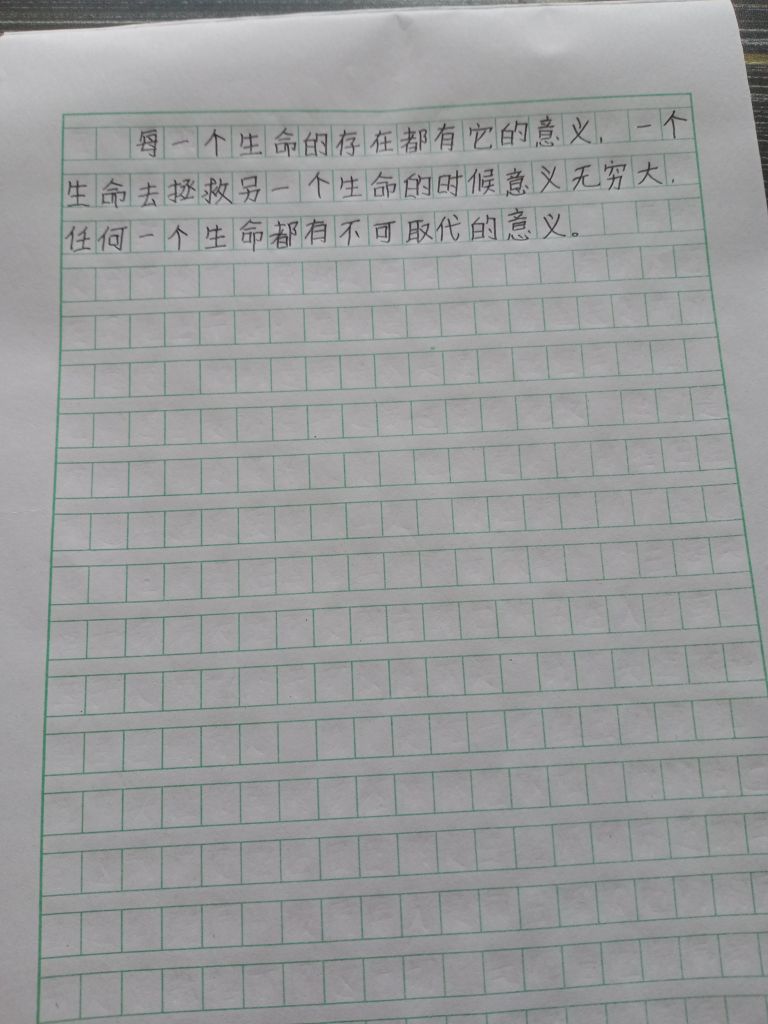 每一个生命的存在都有它的意义，一个
生命去拯救另一个生命的时候意义无穷大，
任何一个生命都有不可取代的意义。